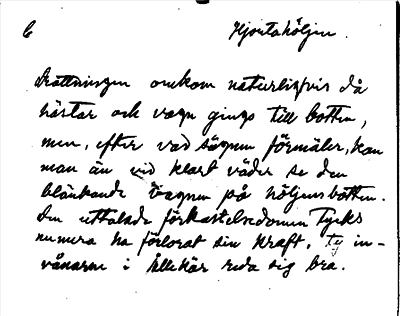 6 Hjortahöljen.
Drottningen omkom naturligtvis då
hästar och vagn gingo till botten,
men, efter vad sägnen förmäler, kan
man än vid klart väder se den
blänkande vagnen på höljens botten.
Den uttalade förkastelsedomen tycks
numera ha förlorat sin kraft, ty in-
vånarne i Ällekär reda sig bra.